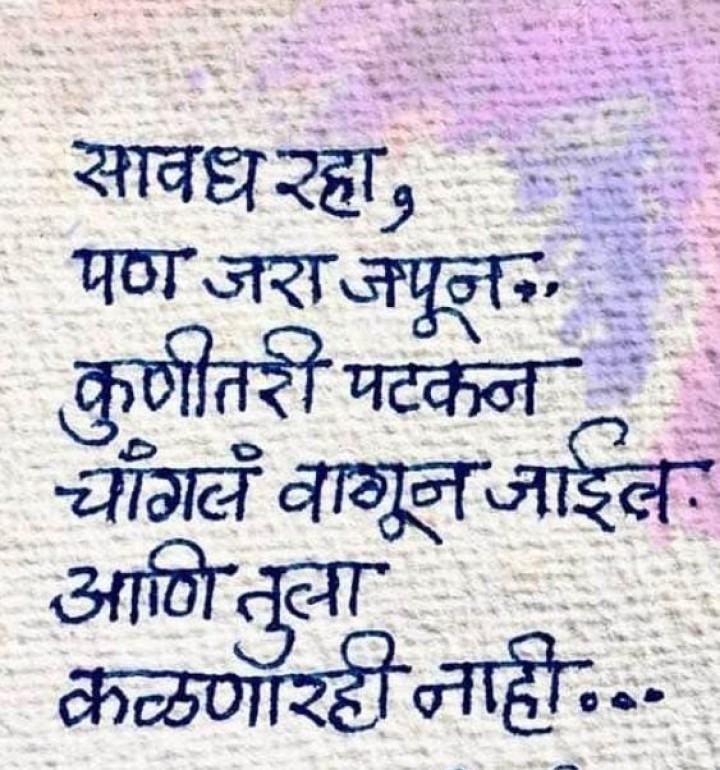 सावध रहा,
पण जरा जपून..
कुणीतरी पटकन
चांगलं वागून जाईल.
आणि तुला
कळणारही नाही...